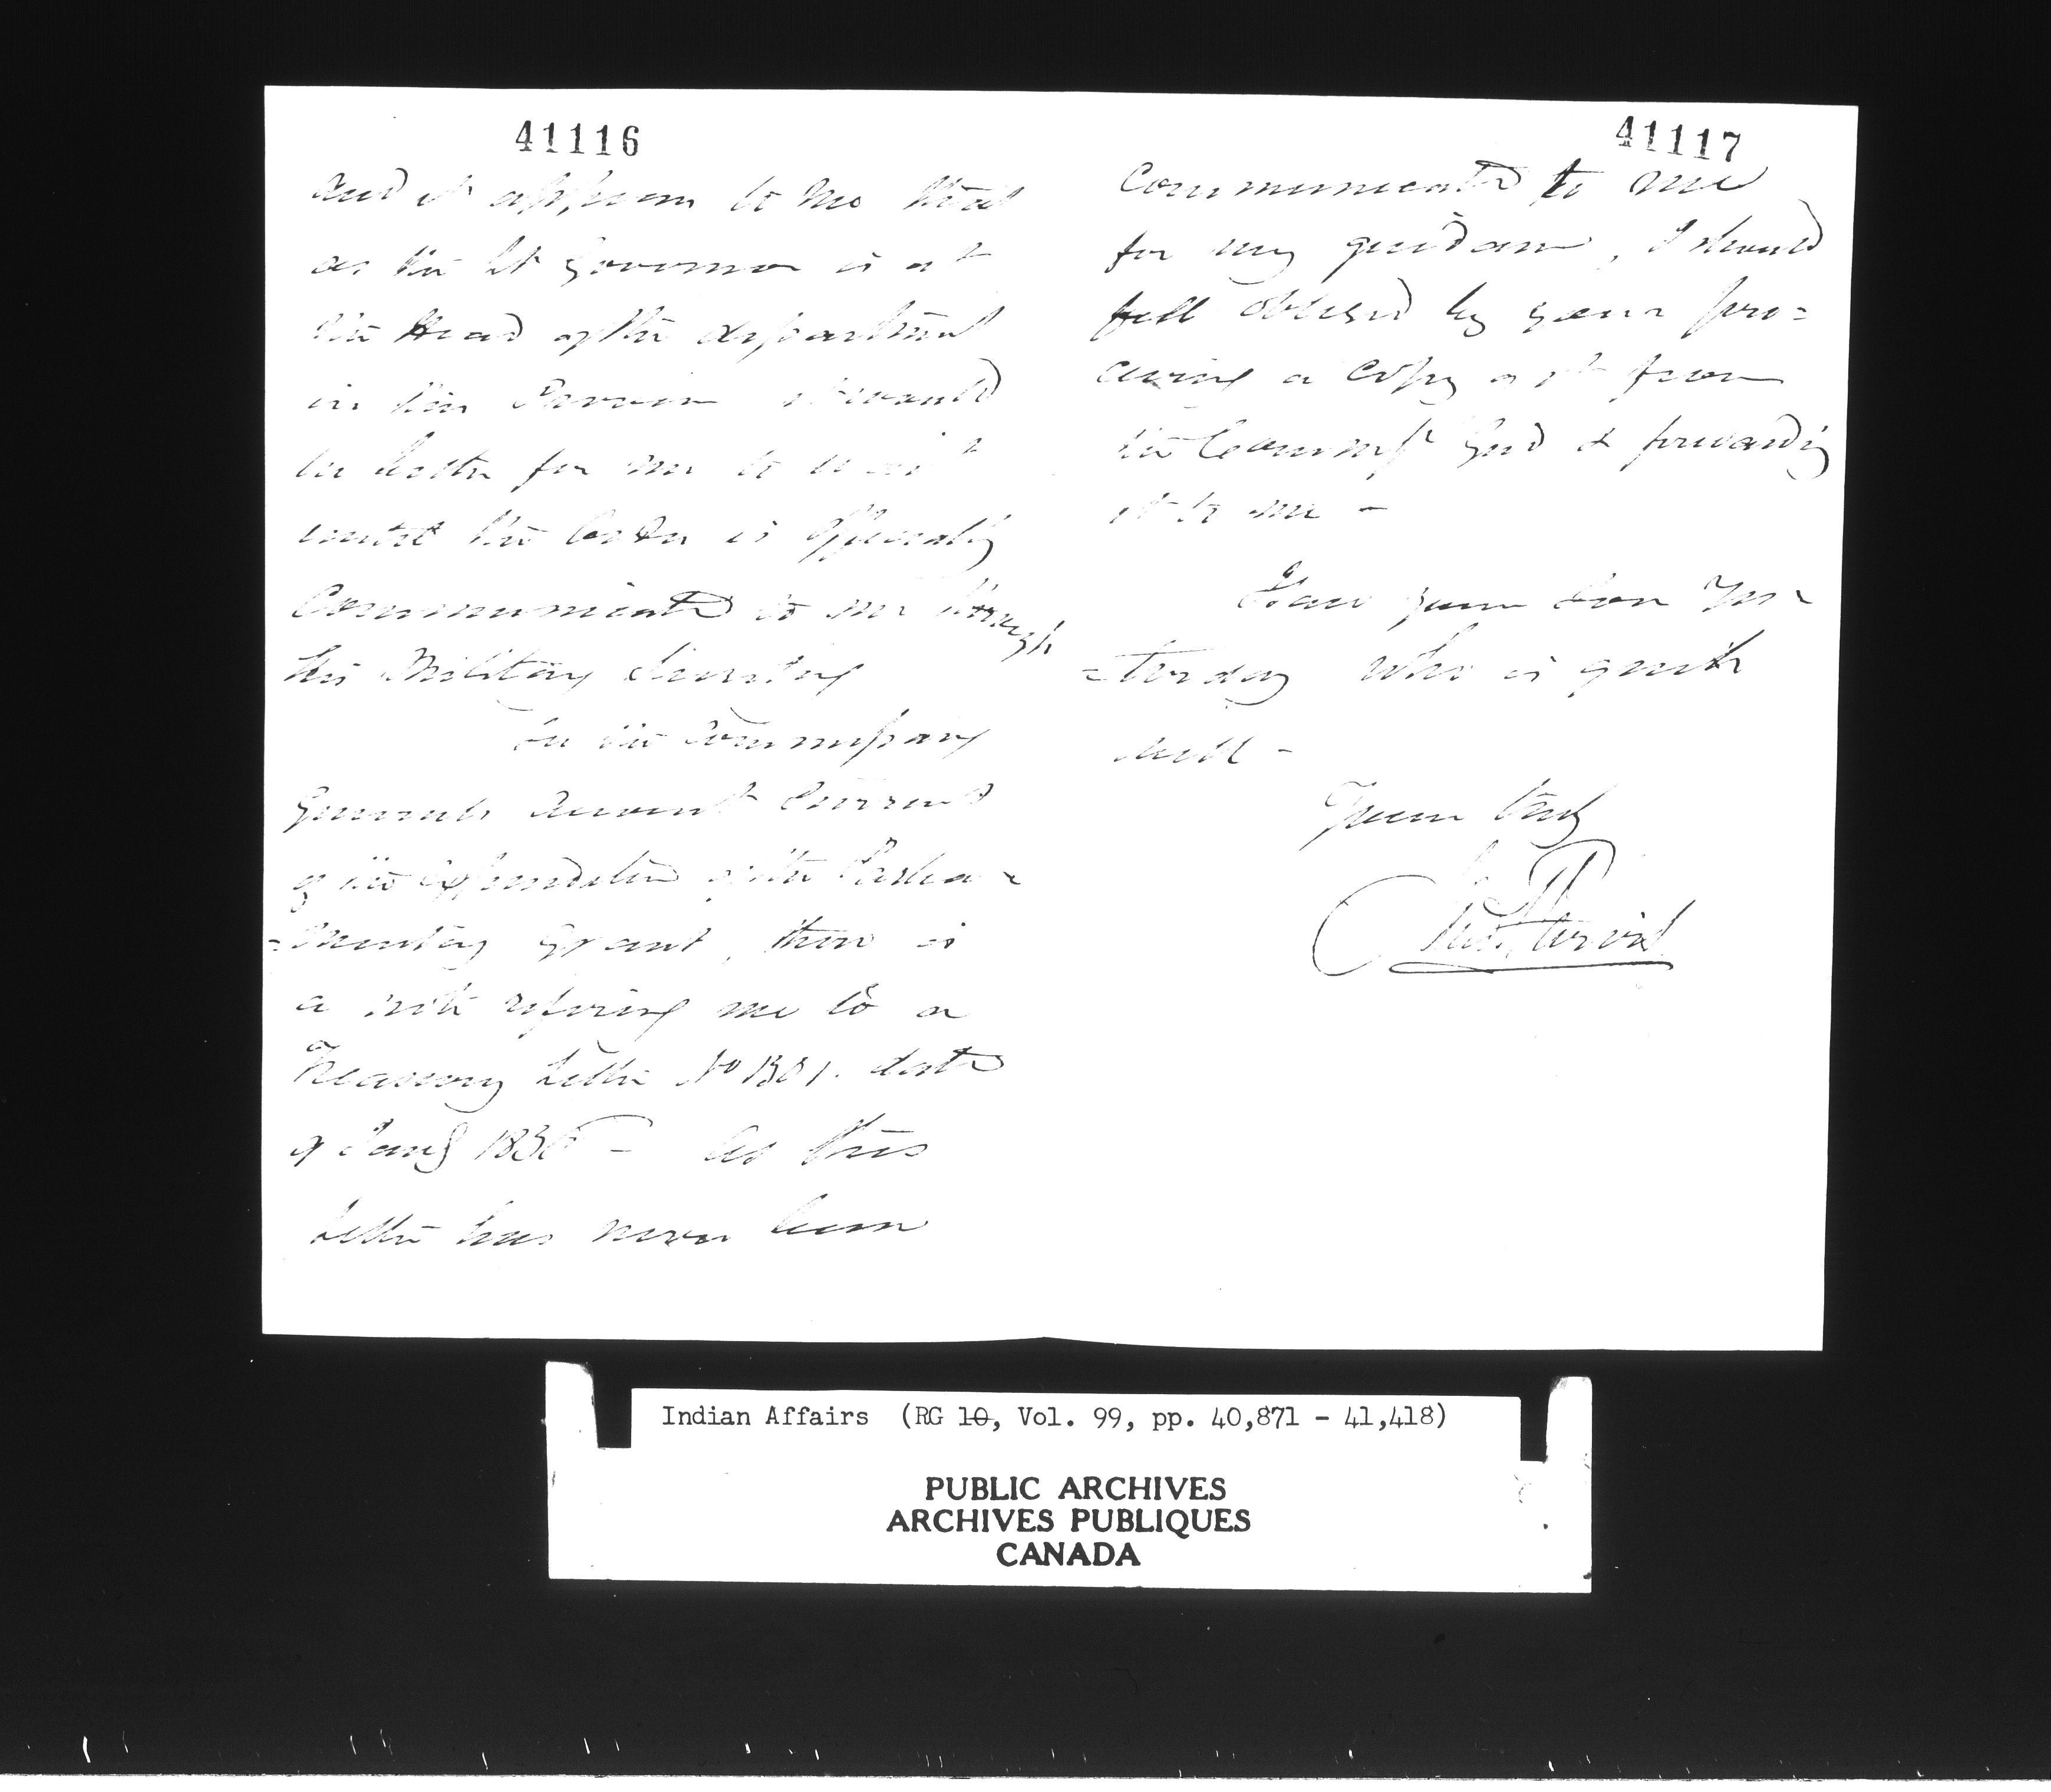 41116
and it appears to me that
as the Lt Governor is at
the Head of the department
in this Province it would
be better for me to wait
until the Order is Officially
Communicated to me through
his Military Secretary
In the Commissary
Generals Account Current
of the Expenditure of the Parlia-
=mentary Grant, there is
a note refering me to a
Treasury Letter No 1301. dated
9 Jany 183 - As this
Letter has never been
41117
Communicated to me
for my guidance, I should
feel obliged by your pro=
curing a copy of it from
the Commissy Genl & forwarding
it to me -
I saw your son Yes-
=terday who is quite
well -
Yours truly
Indian Affairs (RG 10, Vol. 99, pp. 40,871 - 41,418)
PUBLIC ARCHIVES
ARCHIVES PUBLIQUES
CANADA